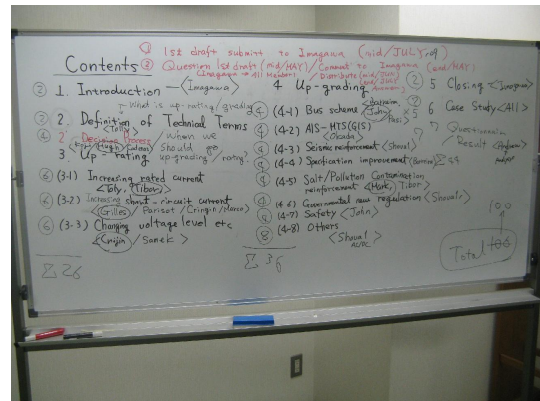 ① 1st draft submit to Imagawa (mid/JULY, 09
② Question 1st draft (mid/MAY) / Comment to Imagawa (end/MAY)
Imagawa → All Members / Distribute (mid/JUN)
Contents
② 1. Introduction — <Imagawa>
What is up-rating/grading
② 2. Definition of Technical Terms
<Toly>
④ 2' Decision Process / When we
Should go
3. Up-rating up-grading/rating?
⑥ (3-1) Increasing rated current
<Toly, Tibor>
⑥ (3-2) Increasing short-circuit current
<Gilles / Parisot / Cringin / Marco>
⑥ (3-3) Changing voltage level etc
/ Sanek>
Σ 26
4 Up-grading
④ (4-1) Bus scheme
④ (4-2) AIS-HTS(GIS)
<Okada>
④ (4-3) Seismic reinforcement <Shoval>
④ (4-4) Specification improvement
④ (4-5) Salt/Pollution Contamination
reinforcement <Hark, Tibor>
④ (4-6) Governmental new regulation <Shoval>
④ (4-7) Safety <John>
⑧ (4-8) Others
<Shoval
Σ 36
② 5 Closing <Imagawa>
6 Case Study <All>
7 Questionnaire
Result
100
Total